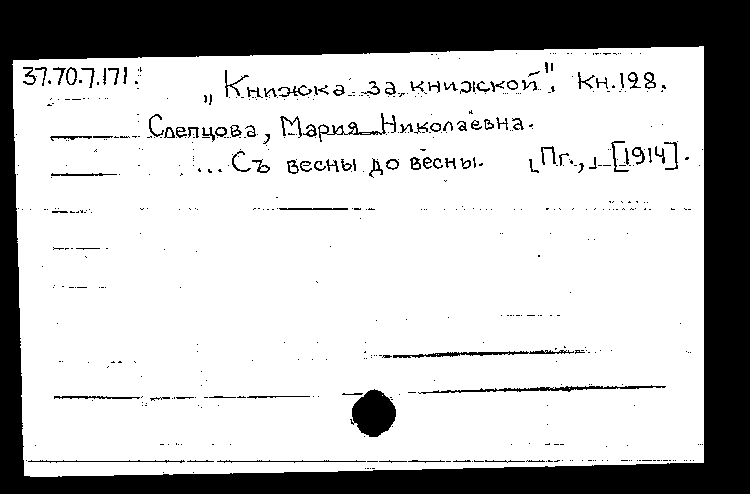 37.70.7.171.
„Книжка за книжкой". Кн.128.
Слепцова, Мария Николаевна.
...Съ весны до весны. [Пг.,] [1914].